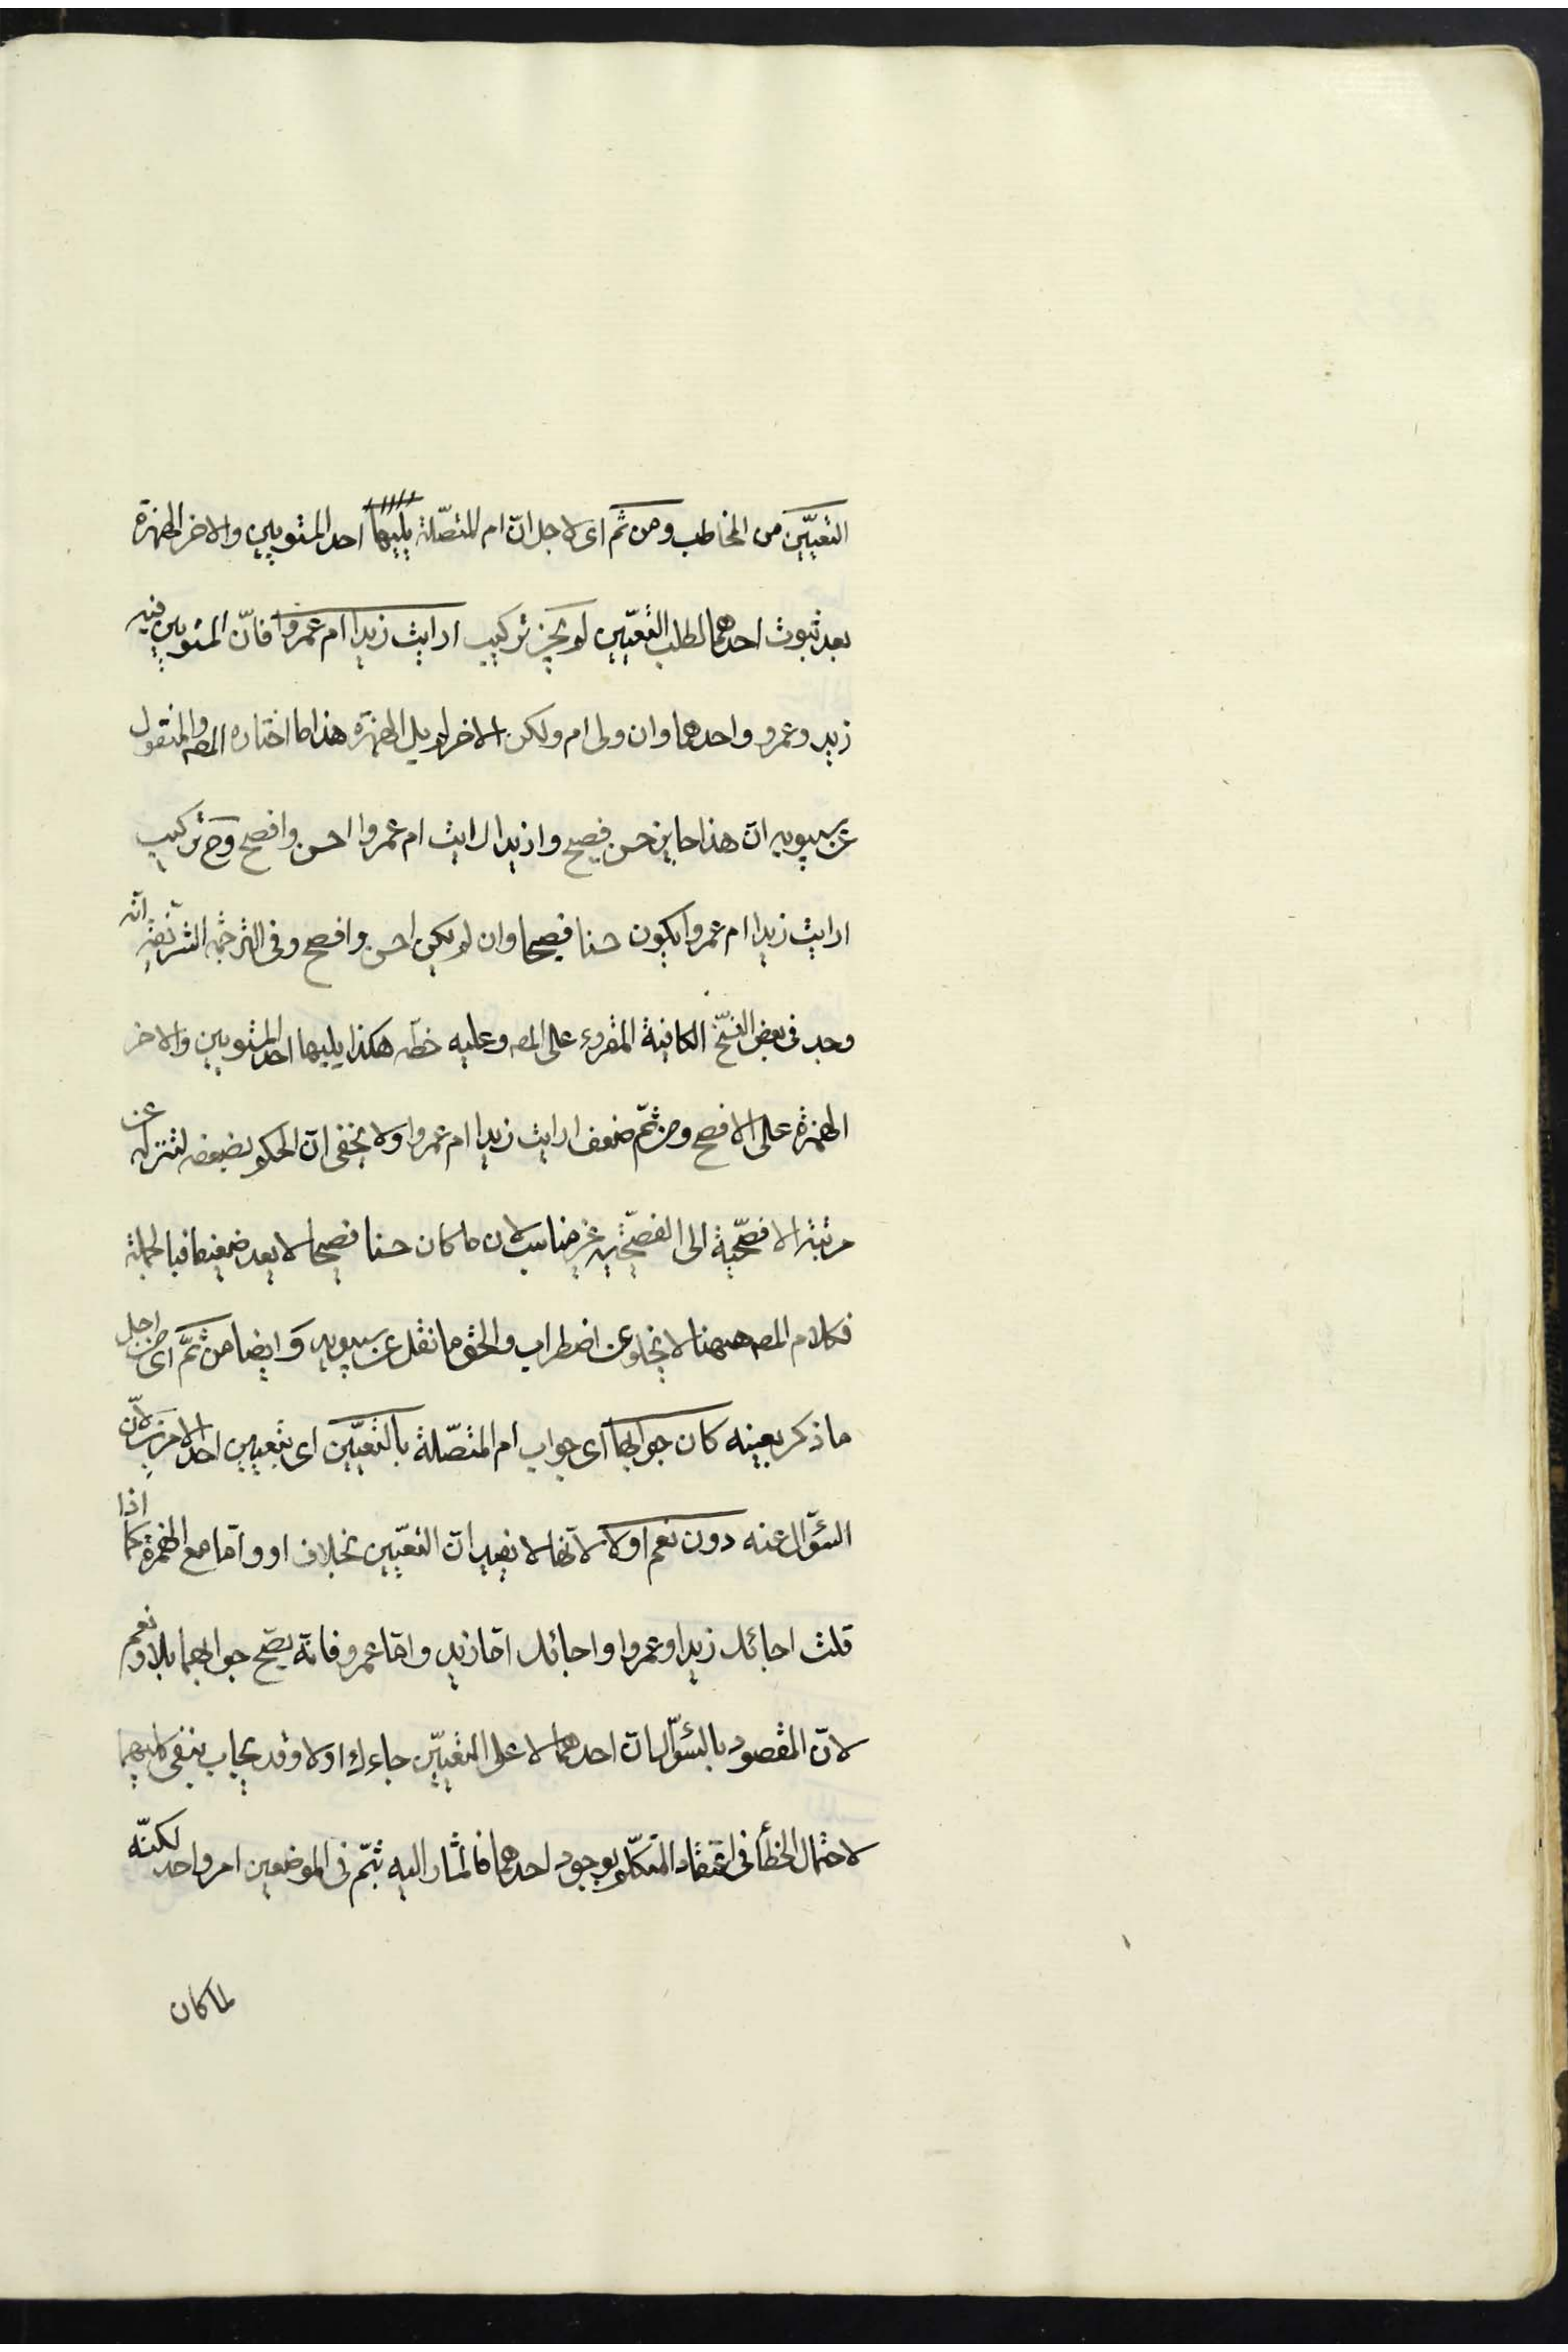 التعيين من المخاطب ومن ثم اى لاجل ان ام المتصلة يليها احد المستويين والاخر الهمزة
بعد ثبوت احدهما لطلب التعيين لم يجز تركيب ارايت زيدا ام عمروا فانّ المستويين فيه
زيد وعمرو واحدهما وان ولى ام ولكن الاخر لم يل الهمزة هذا ما اختاره المصه والمنقول
عن سيبويه انّ هذا جايز حسن فصيح وازيدا رايت ام عمروا احسن وافصح وح تركيب
ارايت زيدا ام عمروا يكون حسنا فصيحا وان لم يكن احسن وافصح وفى الترجمة الشريفة انه
وجد فى بعض النسخ الكافية المقروء على المصه وعليه خطّه هكذا يليها احد المستويين والاخر
الهمزة على الافصح ومن ثمّ ضعف ارايت زيدا ام عمروا ولا يخفى انّ الحكم بضعفه لتنزله عن
مرتبة الافصحّية الى الفصيحّية غير مناسب لان ما كان حسنا فصيحا لا يعد ضعيفا فبالجملة
فكلام المصه ههنا لا يخلو عن اضطراب والحق ما نقل عن سيبويه وايضا من ثمّ اى من اجل
ما ذكر بعينه كان جوابها اى جواب ام المتصّلة بالتعيّين اى بتعيين احد الامرين لانّ
السؤال عنه دون نعم اولا لانّها لا يفيدان التعيّين بخلاف او وامّا مع الهمزة كما اذا
قلت اجائك زيد او عمروا واجائك امّا زيد وامّا عمرو فانّه يصّح جوابهما بلا ونعم
لانّ المقصود بالسؤال انّ احدهما لا على التعيّين جاءك اولا وقد يجاب بنفى كليهما
لاحتمال الخطأ فى اعتقاد المتكلّم بوجود احدهما فالمشار اليه بثمّ فى الموضعين امر واحد لكنّه
لما كان